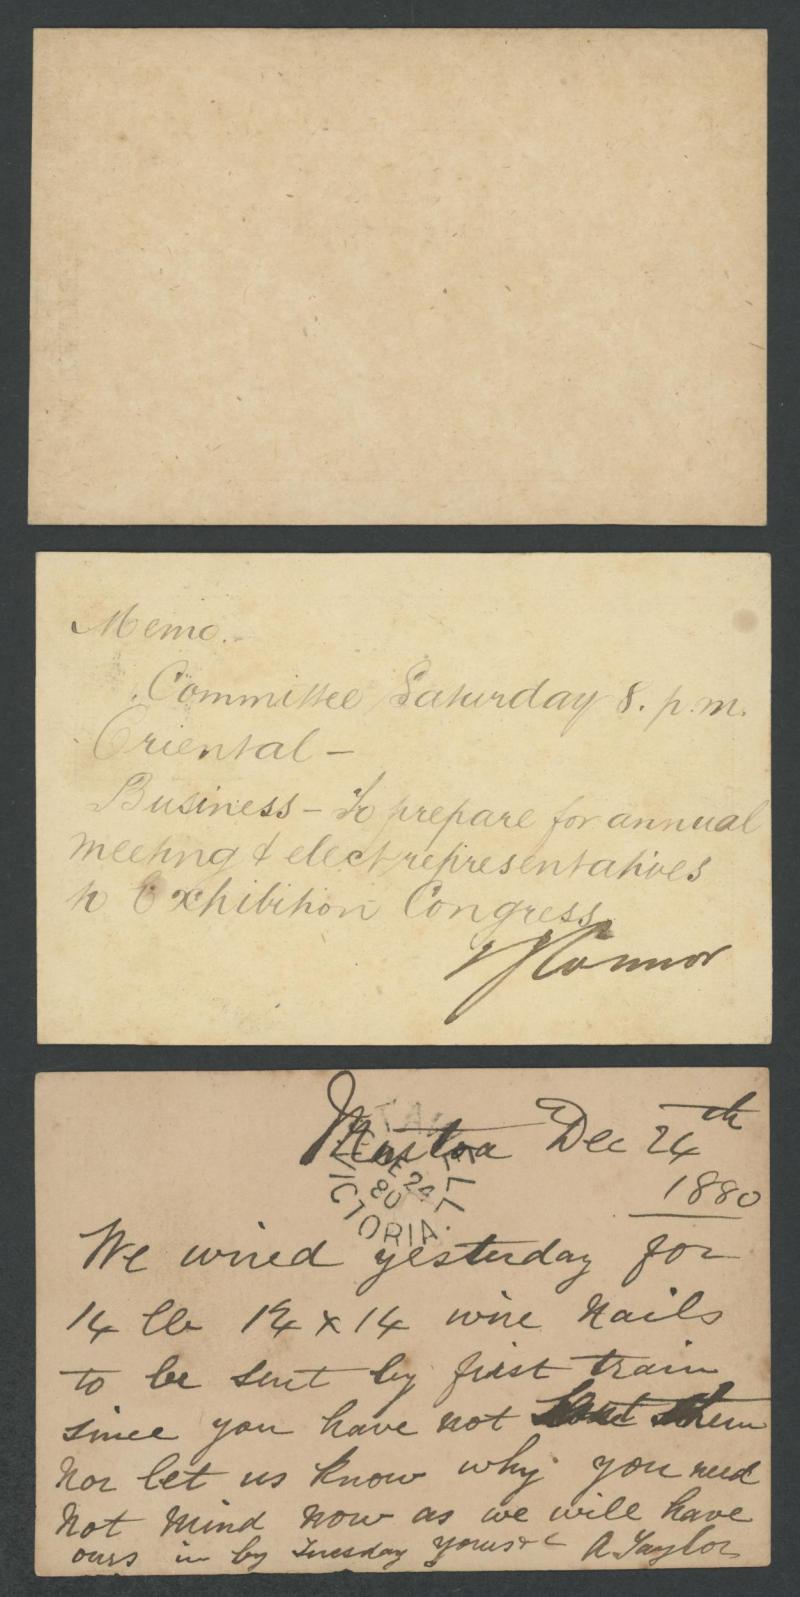 Memo.
Committee Saturday 8. p.m.
Oriental —
Business — To prepare for annual
meeting & elect representatives
to Exhibition Congress
Connor
Dec 24th
1880
STAWELL
DE 24
80
VICTORIA
We wired yesterday for
14 lb 1¼ x 14 wire nails
to be sent by first train
since you have not sent them
nor let us know why you need
not mind now as we will have
ours in by Tuesday yours &c A Taylor